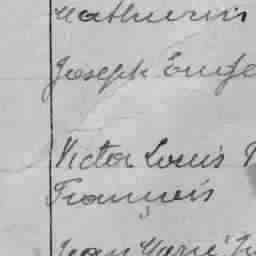 Mathurin
Joseph Euge
Victor Louis
François
Jean Marie